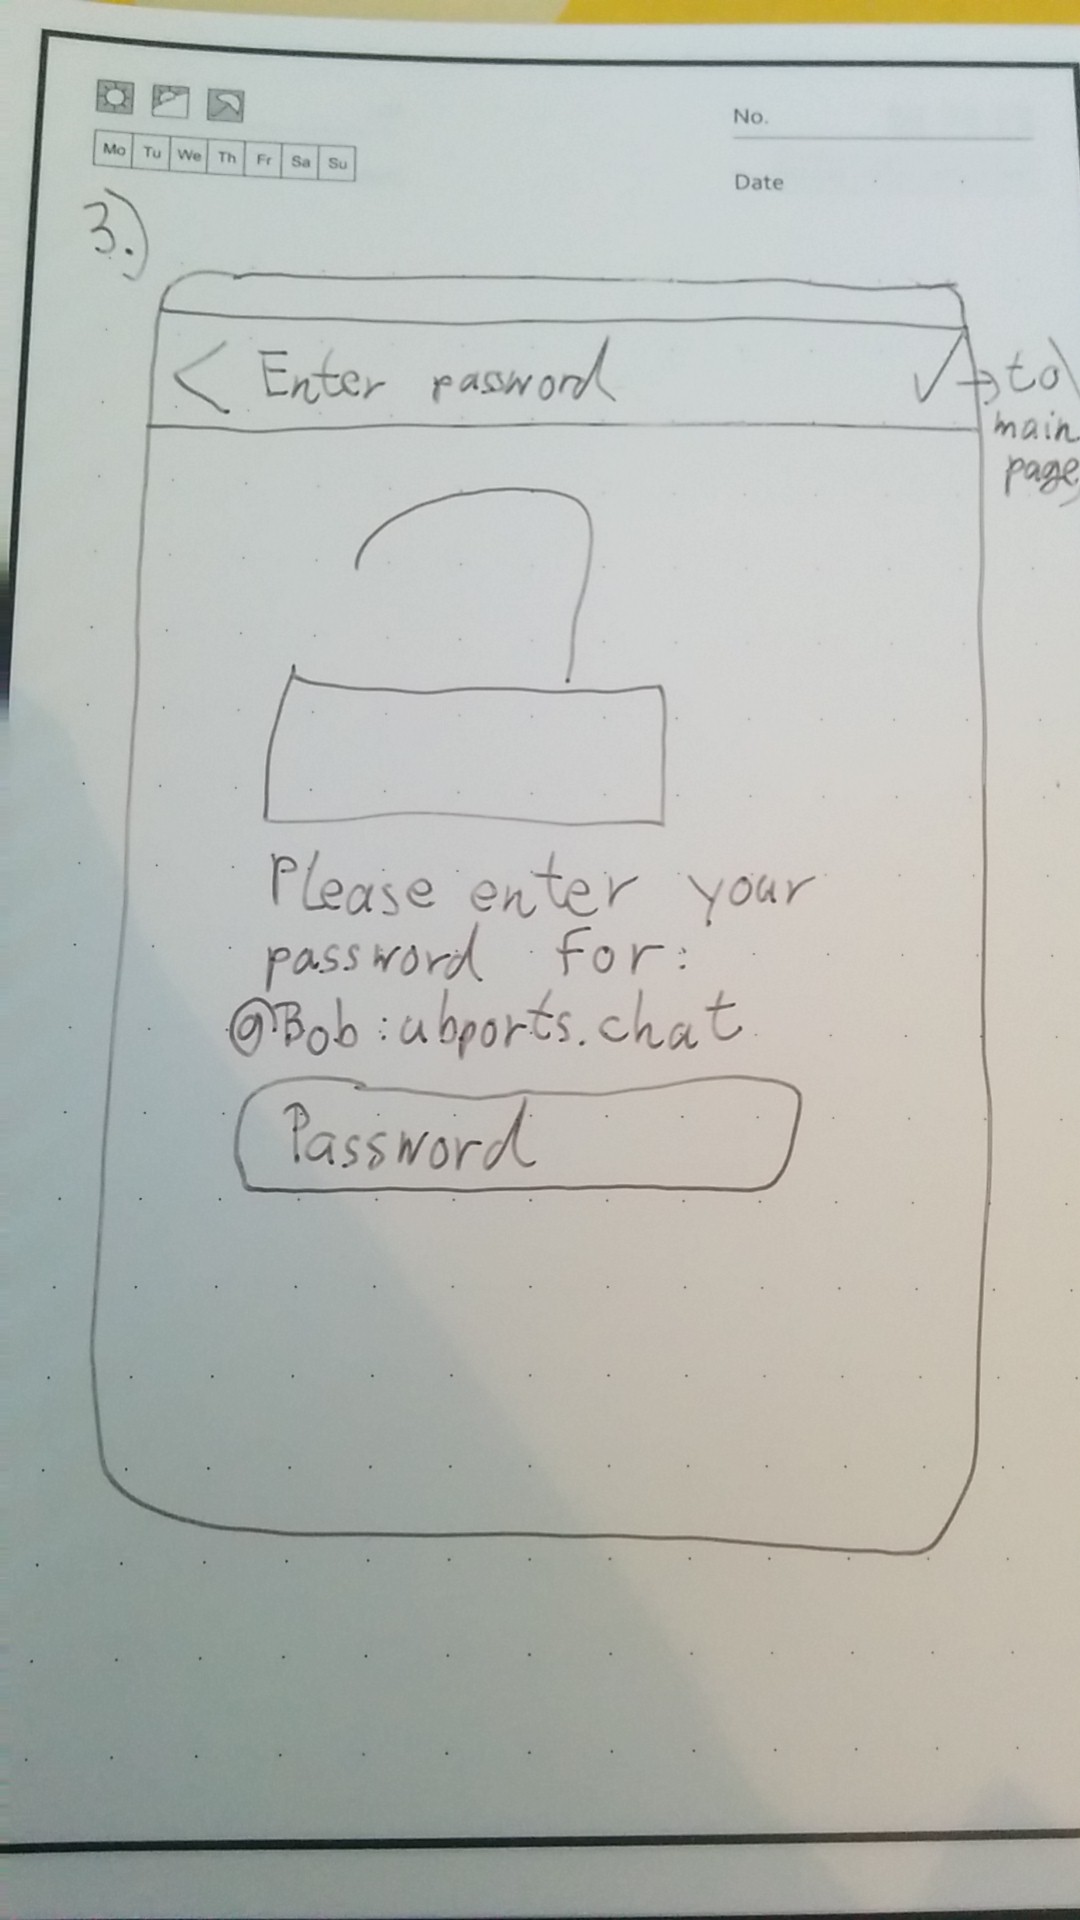 No.
Mo Tu We Th Fr Sa Su
Date
3.)
< Enter password ✓ → to
main
page
Please enter your
password for:
@Bob:ubports.chat
Password